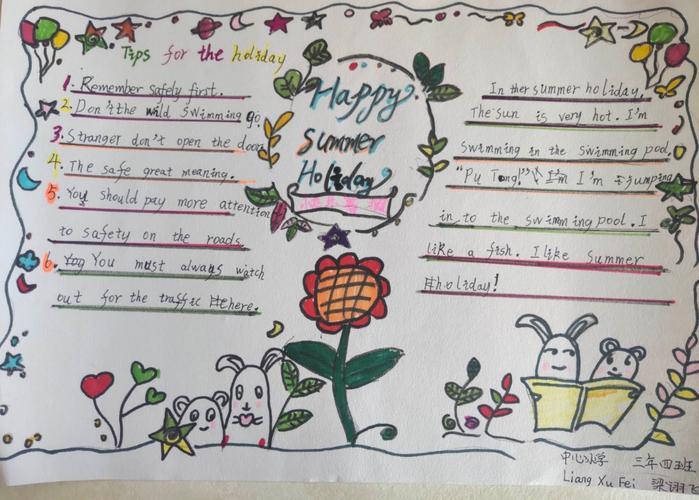 Tips for the holiday
1. Remember safely first.
2. Don't the wild swimming go
3. Stranger don't open the door
4. The safe great meaning.
5. You should pay more attention
to safety on the roads.
6. You must always watch
out for the traffic there.
Happy
Summer
Holiday
In ther summer holiday,
The sun is very hot. I'm
swimming in the swimming pool,
"Pu Tong!" I'm I'm jumping
in to the swimming pool. I
like a fish. I like summer
holiday!
中心小学 三年四班
Liang Xu Fei 梁诩飞